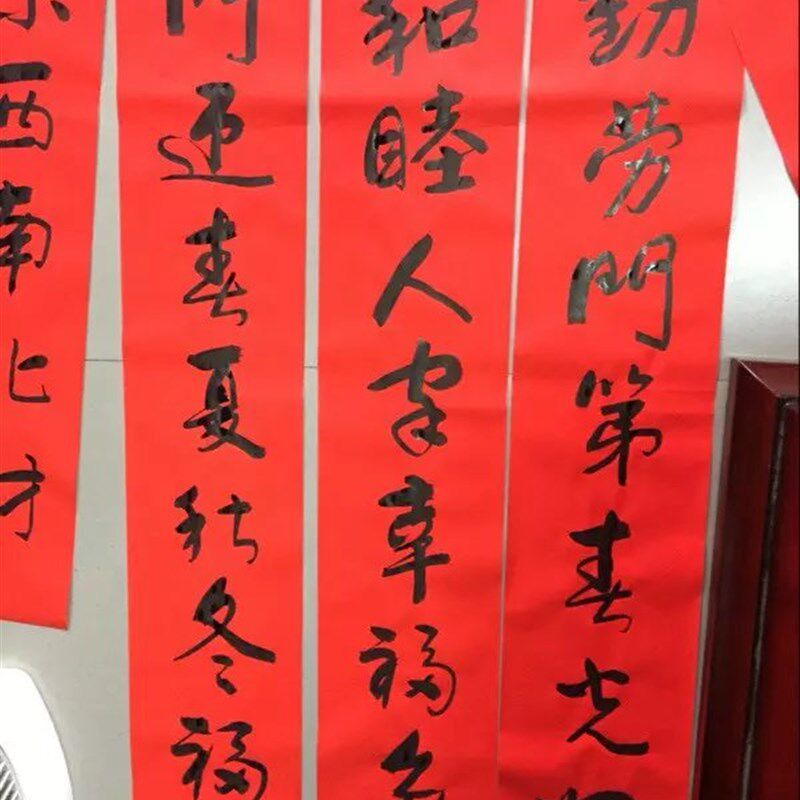 勤劳門第春光
和睦人家幸福多
门迎春夏秋冬福
东西南北才